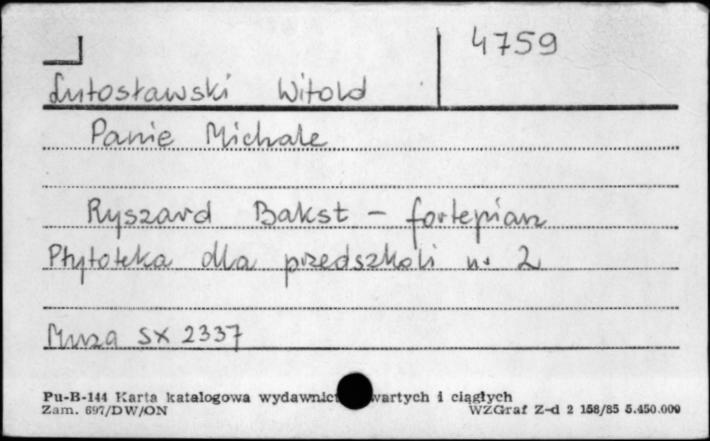 4759
Lutosławski Witold
Panie Michale
Ryszard Bakst - fortepian
Płytoteka dla przedszkoli nr 2
Muza SX 2337
Pu-B-144 Karta katalogowa wydawnict wartych i ciągłych
Zam. 697/DW/ON WZGraf Z-d 2 158/85 5.450.000